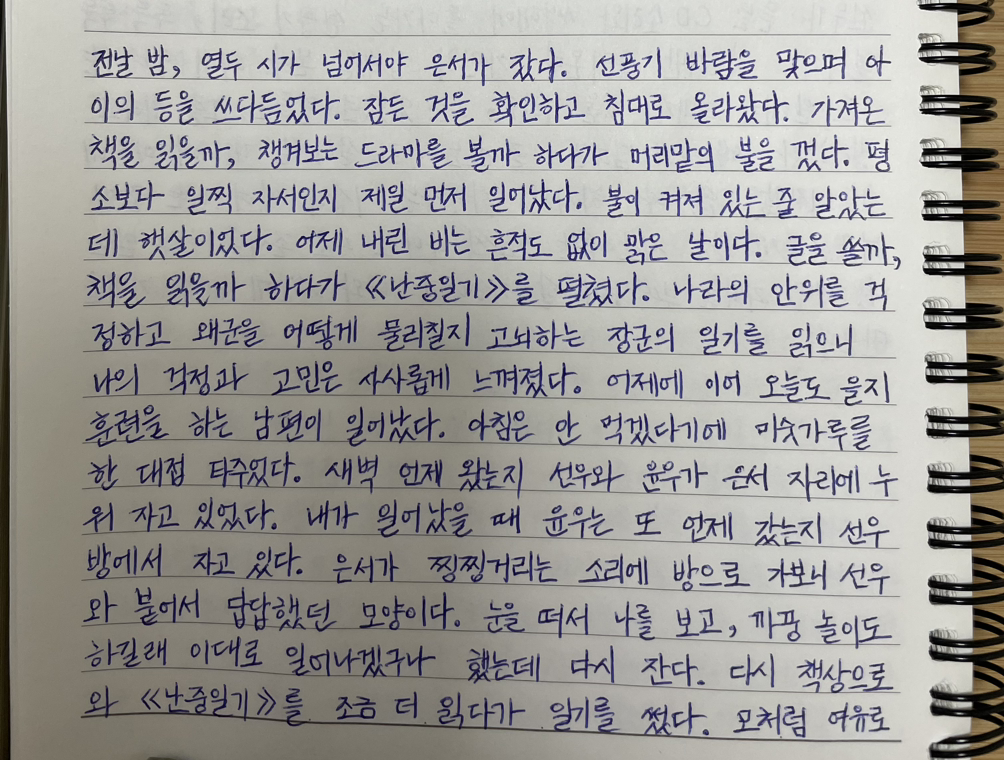 전날 밤, 열두 시가 넘어서야 은서가 잤다. 선풍기 바람을 맞으며 아
이의 등을 쓰다듬었다. 잠든 것을 확인하고 침대로 올라왔다. 가져온
책을 읽을까, 챙겨보는 드라마를 볼까 하다가 머리맡의 불을 껐다. 평
소보다 일찍 자서인지 제일 먼저 일어났다. 불이 켜져 있는 줄 알았는
데 햇살이었다. 어제 내린 비는 흔적도 없이 맑은 날이다. 글을 쓸까,
책을 읽을까 하다가 《난중일기》를 펼쳤다. 나라의 안위를 걱
정하고 왜군을 어떻게 물리칠지 고뇌하는 장군의 일기를 읽으니
나의 걱정과 고민은 사사롭게 느껴졌다. 어제에 이어 오늘도 을지
훈련을 하는 남편이 일어났다. 아침은 안 먹겠다기에 미숫가루를
한 대접 타주었다. 새벽 언제 왔는지 선우와 윤우가 은서 자리에 누
워 자고 있었다. 내가 일어났을 때 윤우는 또 언제 갔는지 선우
방에서 자고 있다. 은서가 찡찡거리는 소리에 방으로 가보니 선우
와 붙어서 답답했던 모양이다. 눈을 떠서 나를 보고, 까꿍 놀이도
하길래 이대로 일어나겠구나 했는데 다시 잔다. 다시 책상으로
와 《난중일기》를 조금 더 읽다가 일기를 썼다. 모처럼 여유로